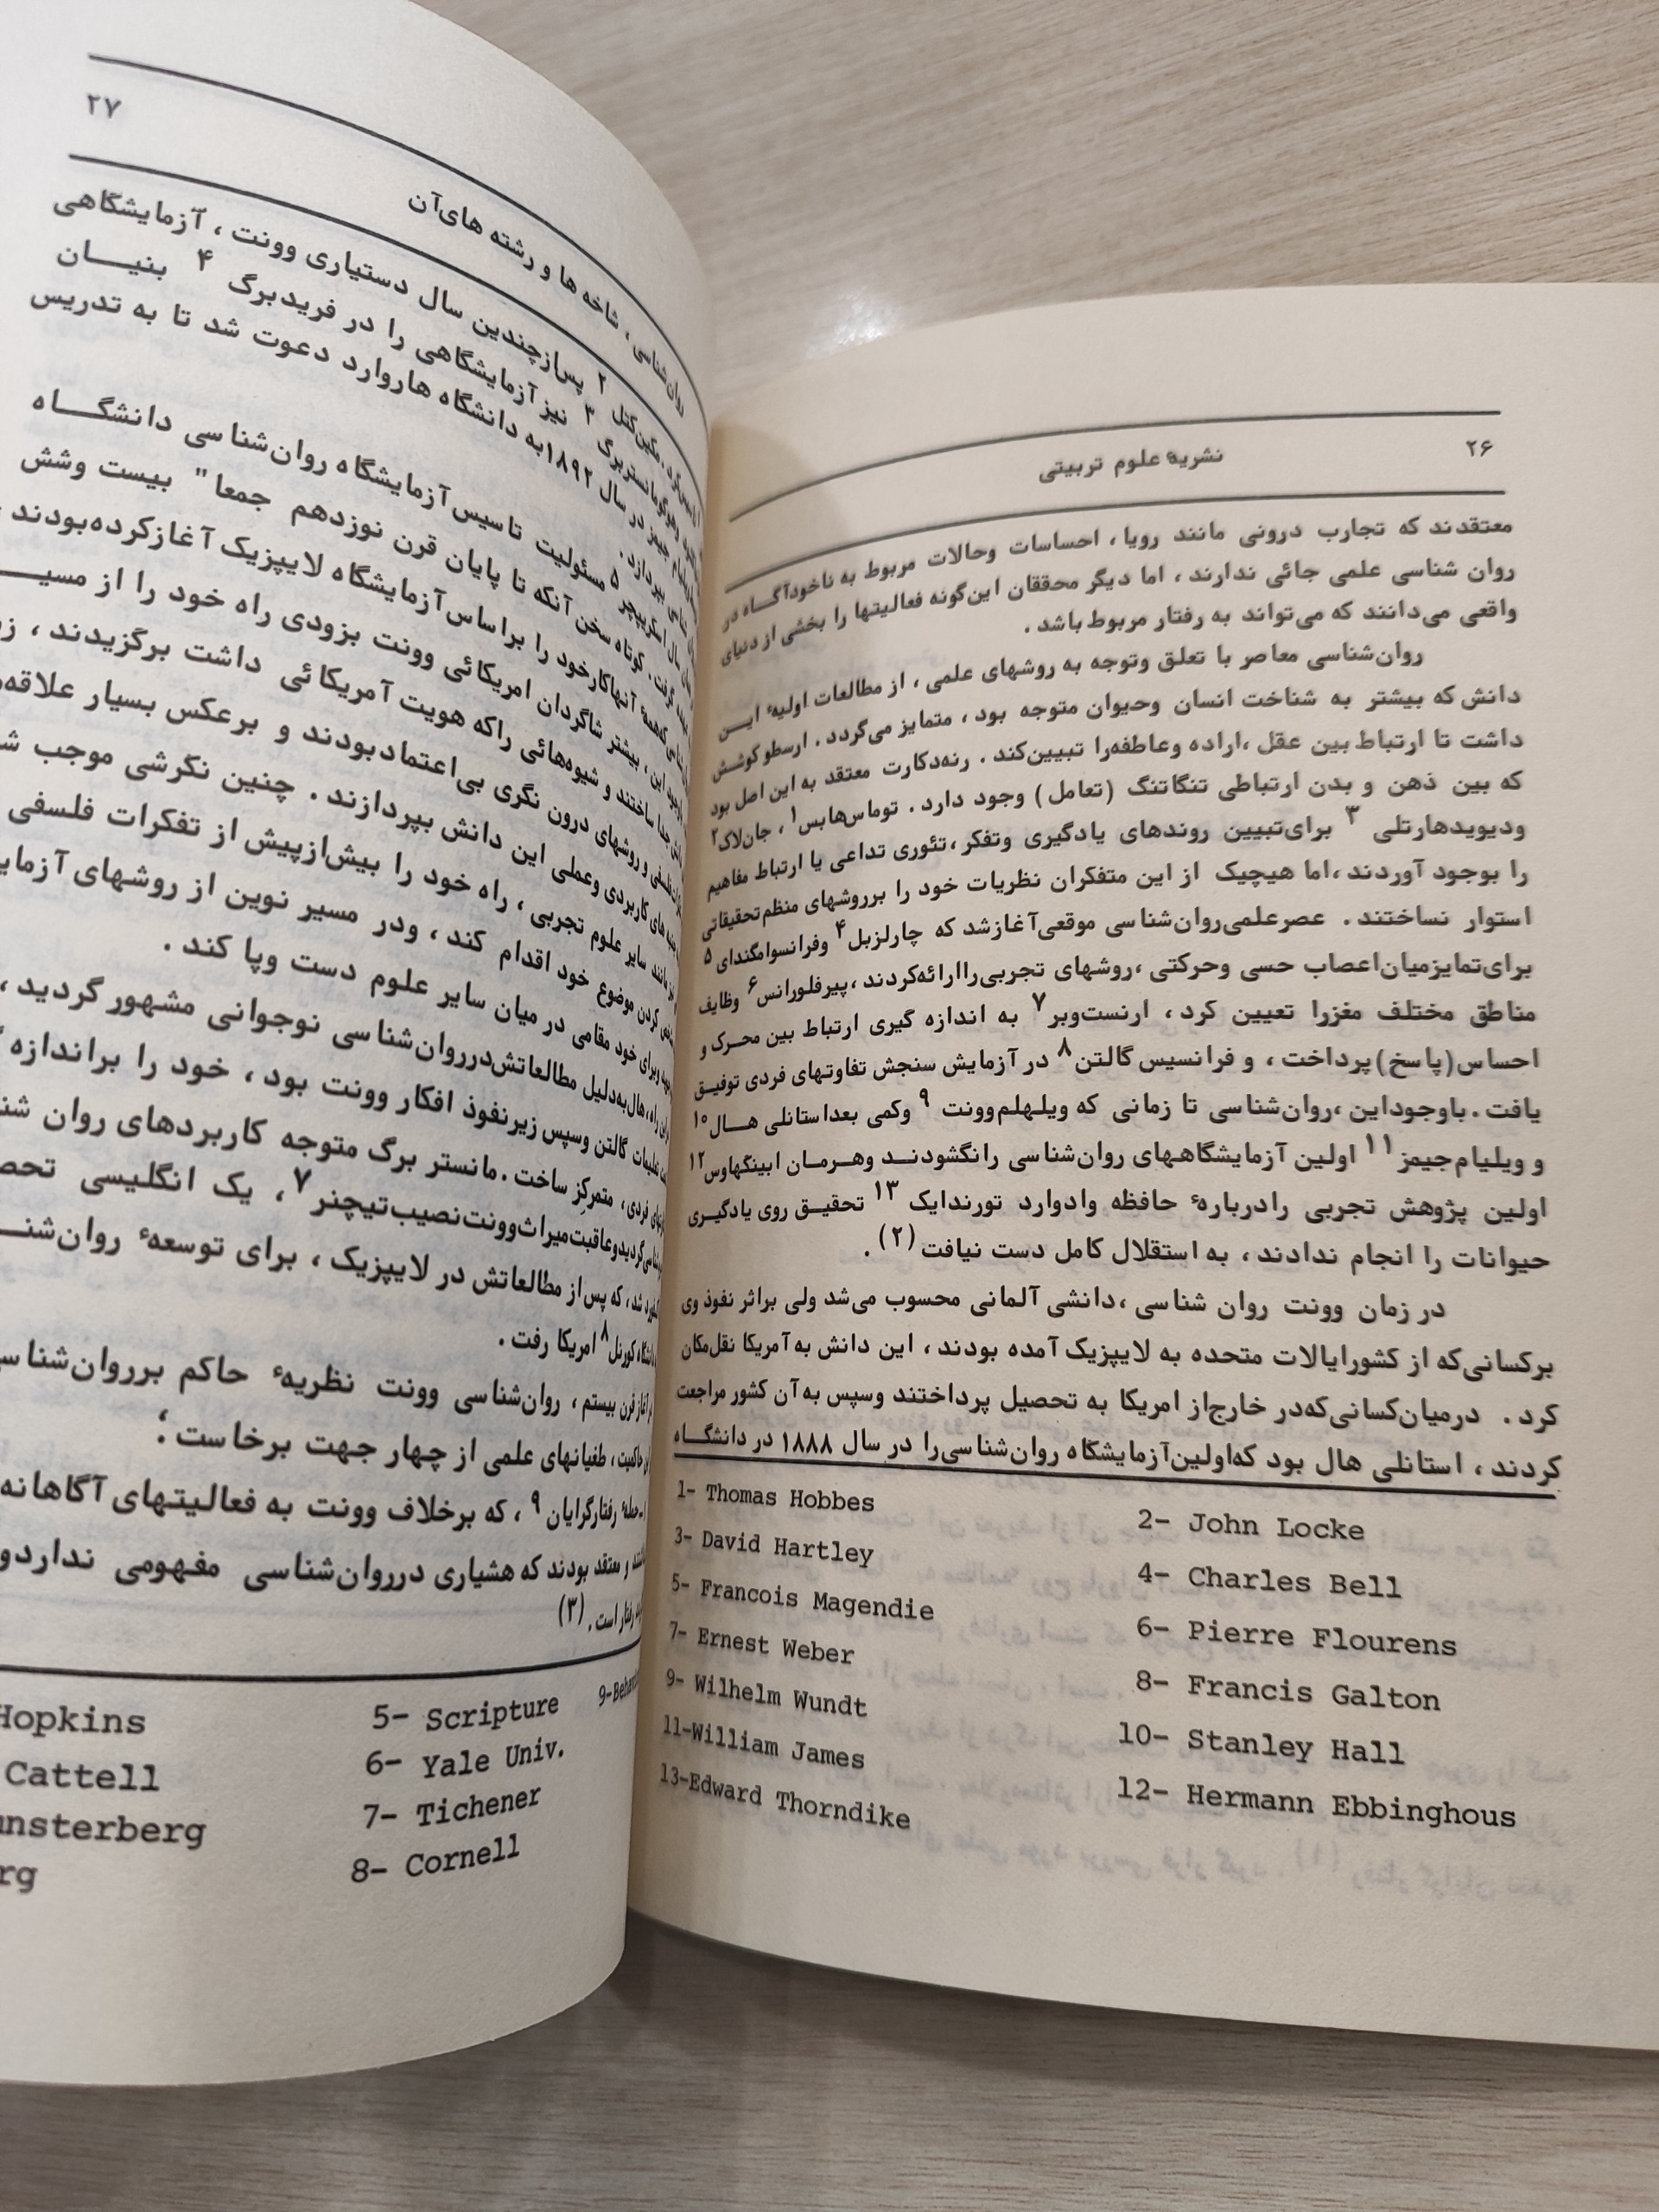 ۲۶
نشریه علوم تربیتی
معتقدند که تجارب درونی مانند رویا، احساسات وحالات مربوط به ناخودآگاه در
روان شناسی علمی جائی ندارند، اما دیگر محققان این‌گونه فعالیتها را بخشی از دنیای
واقعی می‌دانند که می‌تواند به رفتار مربوط باشد.
روان‌شناسی معاصر با تعلق وتوجه به روشهای علمی، از مطالعات اولیهٔ این
دانش که بیشتر به شناخت انسان وحیوان متوجه بود، متمایز می‌گردد. ارسطو کوشش
داشت تا ارتباط بین عقل، اراده وعاطفه‌را تبیین‌کند. رنه‌دکارت معتقد به این اصل بود
که بین ذهن و بدن ارتباطی تنگاتنگ (تعامل) وجود دارد. توماس‌هابس۱، جان‌لاک۲
ودیویدهارتلی ۳ برای‌تبیین روندهای یادگیری وتفکر، تئوری تداعی یا ارتباط مفاهیم
را بوجود آوردند، اما هیچیک از این متفکران نظریات خود را برروشهای منظم تحقیقاتی
استوار نساختند. عصرعلمی‌روان‌شناسی موقعی‌آغازشد که چارلزبل۴ وفرانسوامگندای ۵
برای‌تمایزمیان‌اعصاب حسی وحرکتی، روشهای تجربی‌راارائه‌کردند، پیرفلورانس۶ وظایف
مناطق مختلف مغزرا تعیین کرد، ارنست‌وبر۷ به اندازه گیری ارتباط بین محرک و
احساس(پاسخ)پرداخت، و فرانسیس گالتن۸ در آزمایش سنجش تفاوتهای فردی توفیق
یافت. باوجوداین، روان‌شناسی تا زمانی که ویلهلم‌وونت ۹ وکمی بعداستانلی هال۱۰
و ویلیام‌جیمز۱۱ اولین آزمایشگاههای روان‌شناسی رانگشودند وهرمان ابینگهاوس۱۲
اولین پژوهش تجربی رادربارهٔ حافظه وادوارد تورندایک ۱۳ تحقیق روی یادگیری
حیوانات را انجام ندادند، به استقلال کامل دست نیافت(۲).
در زمان وونت روان شناسی، دانشی آلمانی محسوب می‌شد ولی براثر نفوذ وی
برکسانی‌که از کشورایالات متحده به لایپزیک آمده بودند، این دانش به آمریکا نقل‌مکان
کرد. درمیان‌کسانی‌که‌در خارج‌از امریکا به تحصیل پرداختند وسپس به آن کشور مراجعت
کردند، استانلی هال بود که‌اولین‌آزمایشگاه روان‌شناسی‌را در سال ۱۸۸۸ در دانشگاه
1- Thomas Hobbes
2- John Locke
3- David Hartley
4- Charles Bell
5- Francois Magendie
6- Pierre Flourens
7- Ernest Weber
8- Francis Galton
9- Wilhelm Wundt
10- Stanley Hall
11-William James
12- Hermann Ebbinghous
13-Edward Thorndike
روان‌شناسی، شاخه ها و رشته های‌آن
۲۷
مکین‌کتل ۲ پس‌ازچندین سال دستیاری وونت، آزمایشگاهی
وهوگومانستربرگ ۳ نیز آزمایشگاهی را در فریدبرگ ۴ بنیان
جیمز در سال ۱۸۹۲به دانشگاه هاروارد دعوت شد تا به تدریس
بپردازد.
سال اسکریپچر ۵ مسئولیت تاسیس‌آزمایشگاه روان‌شناسی دانشگاه
گرفت. کوتاه سخن آنکه تا پایان قرن نوزدهم جمعا" بیست وشش
آنهاکارخود را براساس‌آزمایشگاه لایپزیک آغازکرده‌بودند
این، بیشتر شاگردان امریکائی وونت بزودی راه خود را از
جدا ساختند و شیوه‌هائی راکه هویت آمریکائی داشت برگزیدند،
و روشهای درون نگری بی‌اعتمادبودند و برعکس بسیار
های کاربردی وعملی این دانش بپردازند. چنین نگرشی موجب
مانند سایر علوم تجربی، راه خود را بیش‌ازپیش از تفکرات فلسفی
کردن موضوع خود اقدام کند، ودر مسیر نوین از روشهای
برای خود مقامی در میان سایر علوم دست وپا کند.
هال‌به‌دلیل مطالعاتش‌درروان‌شناسی نوجوانی مشهور گردید،
گالتن وسپس زیرنفوذ افکار وونت بود، خود را
فردی، متمرکز ساخت. مانستر برگ متوجه کاربردهای روان
گردیدوعاقبت‌میراث‌وونت‌نصیب‌تیچنر۷، یک انگلیسی
شد، که پس‌از مطالعاتش در لایپزیک، برای توسعهٔ
کورنل۸ امریکا رفت.
آغاز قرن بیستم، روان‌شناسی وونت نظریهٔ حاکم برروان‌شناسی
حاکمیت، طغیانهای علمی از چهار جهت برخاست؛
رفتارگرایان ۹، که برخلاف وونت به فعالیتهای آگاهانه
و معتقد بودند که هشیاری درروان‌شناسی مفهومی ندارد
رفتار است. (۳)
Hopkins
5- Scripture
Cattell
6- Yale Univ.
7- Tichener
8- Cornell